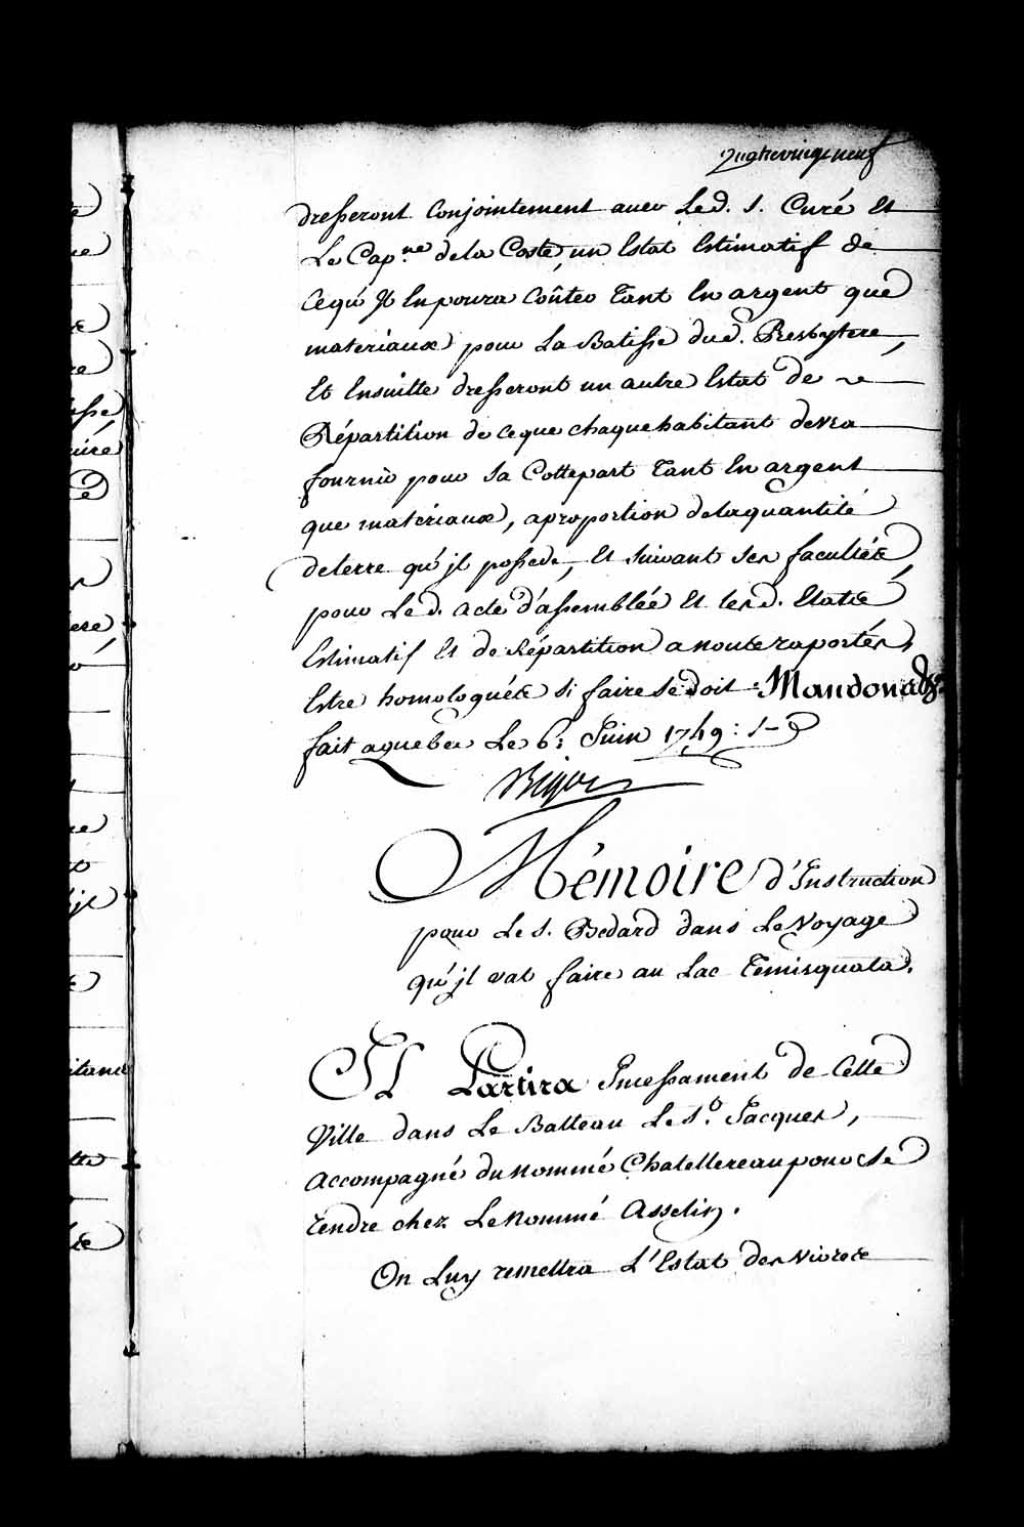 quatrevingt neuf
dresseront Conjointement avec Led. S. Curé Et
Le Capne. dela Coste, un Estat Estimatif de
Cequ'Il Enpoura Coûter Tant En argent que
materiaux pour La Batisse dud. Presbytere,
Et Ensuitte dresseront un autre Estat de
Répartition de ceque chaque habitant devra
fournir pour Sa Cottepart Tant En argent
que materiaux, aproportion delaquantité
deterre qu'jl possede, Et Suivant Ses facultés,
pour Led. acte d'assemblée Et lesd. Etats
Estimatif Et de Répartition a nous raportés,
Estre homologués Si faire Se doit. Mandons &a
fait aquebec Le 6: Juin 1749:
Bigot
Mémoire d'Instruction
pour Le S. Bedard dans Le Voyage
qu'jl vat faire au Lac Temisquata.
Il Partira Incessament de Cette
Ville dans Le Batteau Le St. Jacques,
accompagné du nommé Chatellereau pour Se
rendre chez Le nommé Asselin.
On Luy remettra L'Estat des vivres